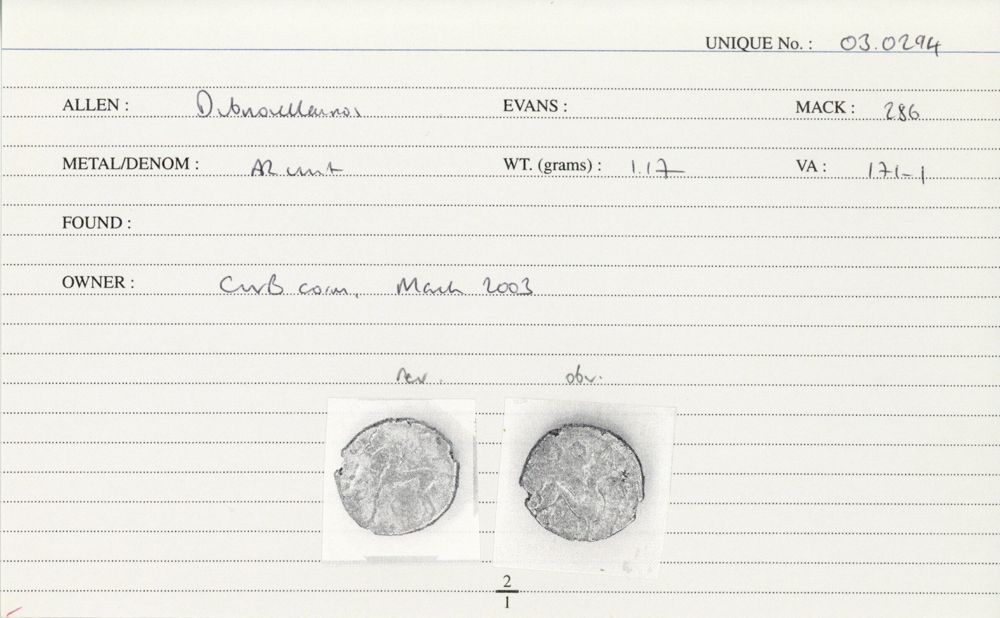 UNIQUE No. : 03.0294
ALLEN : Dubnovellaunos EVANS : MACK : 286
METAL/DENOM : AR unit WT. (grams) : 1.17 VA : 171-1
FOUND :
OWNER : CNB coin, March 2003
rev. obv.
2
1